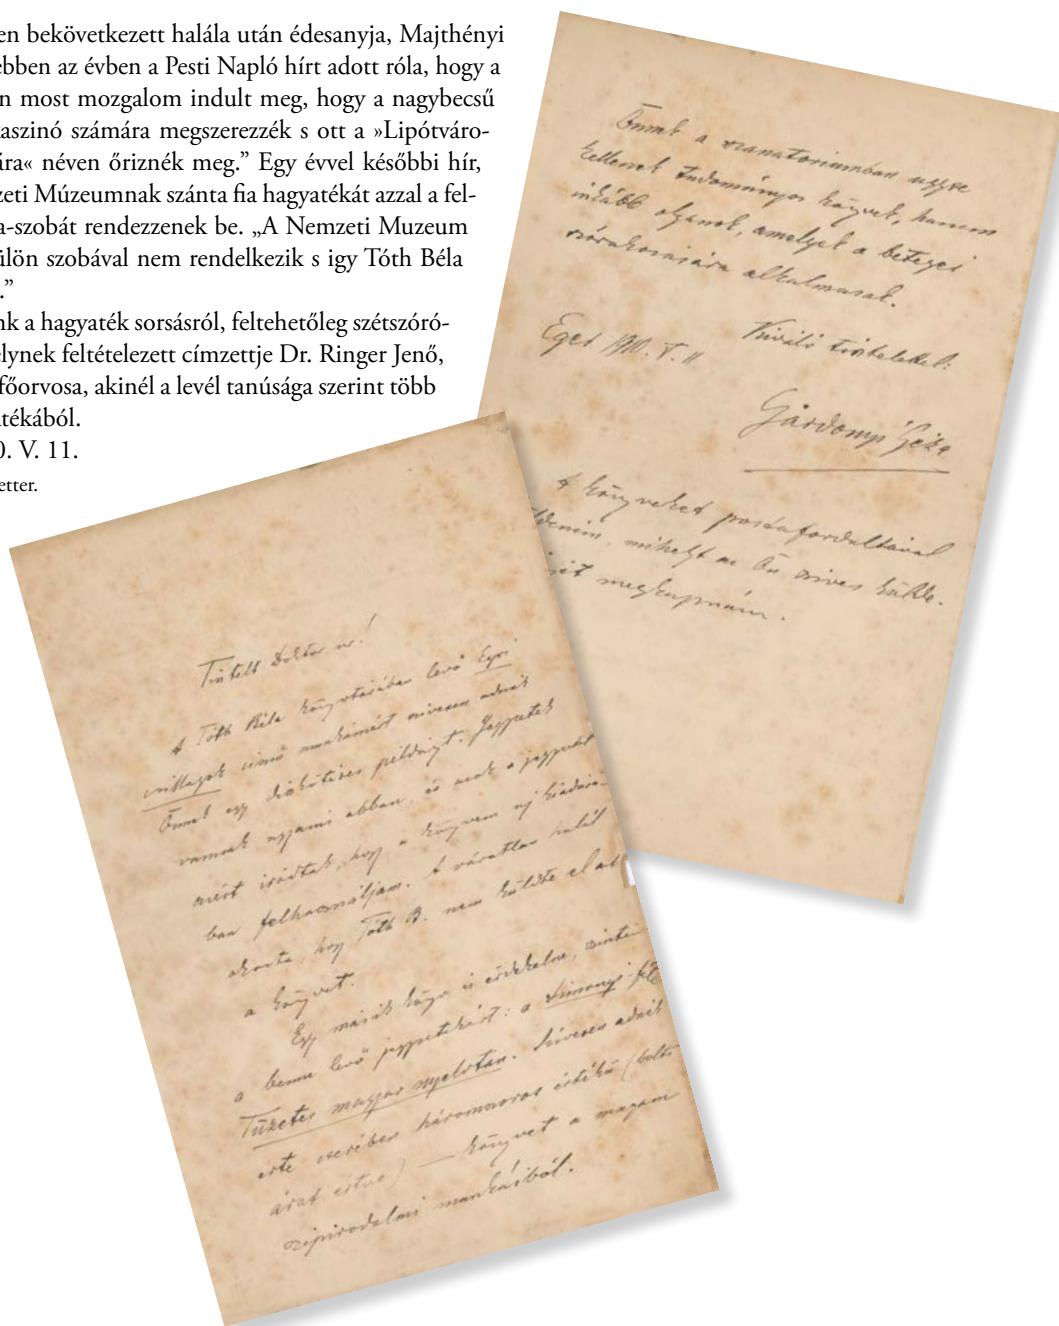 en bekövetkezett halála után édesanyja, Majthényi
ebben az évben a Pesti Napló hírt adott róla, hogy a
n most mozgalom indult meg, hogy a nagybecsű
kaszinó számára megszerezzék s ott a »Lipótváro-
ára« néven őriznék meg.” Egy évvel későbbi hír,
zeti Múzeumnak szánta fia hagyatékát azzal a fel-
a-szobát rendezzenek be. „A Nemzeti Muzeum
ülön szobával nem rendelkezik s igy Tóth Béla
.”
nk a hagyaték sorsásról, feltehetőleg szétszóró-
elynek feltételezett címzettje Dr. Ringer Jenő,
főorvosa, akinél a levél tanúsága szerint több
atékából.
0. V. 11.
etter.
Tisztelt Doktor ur!
A Tóth Béla könyvtárában levő Egri
csillagok cimü munkámért szivesen adnék
Önnek egy diszkötéses példányt. Jegyzetek
vannak ugyanis abban, és azok a jegyzetek
azért iródtak, hogy a könyvem uj kiadásá-
ban felhasználjam. A váratlan halál
okozta, hogy Tóth B. nem küldte el azt
a könyvet.
Egy másik könyv is érdekelne, szinte
a benne levő jegyzetekért: a Simonyi-féle
Tüzetes magyar nyelvtan. Szivesen adnék
érte cserében háromszoros értékü (bolti
árat értve) — könyvet a magam
szépirodalmi munkáiból.
Önnek a szanatoriumban ugyse
kellenek tudományos könyvek, hanem
inkább olyanok, amelyek a betegei
szórakozására alkalmasak.
Kiváló tisztelettel:
Eger 1910. V. 11.
Gárdonyi Géza
A könyveket postafordultával
küldeném, mihelyt az Ön szives külde-
ményét megkapnám.